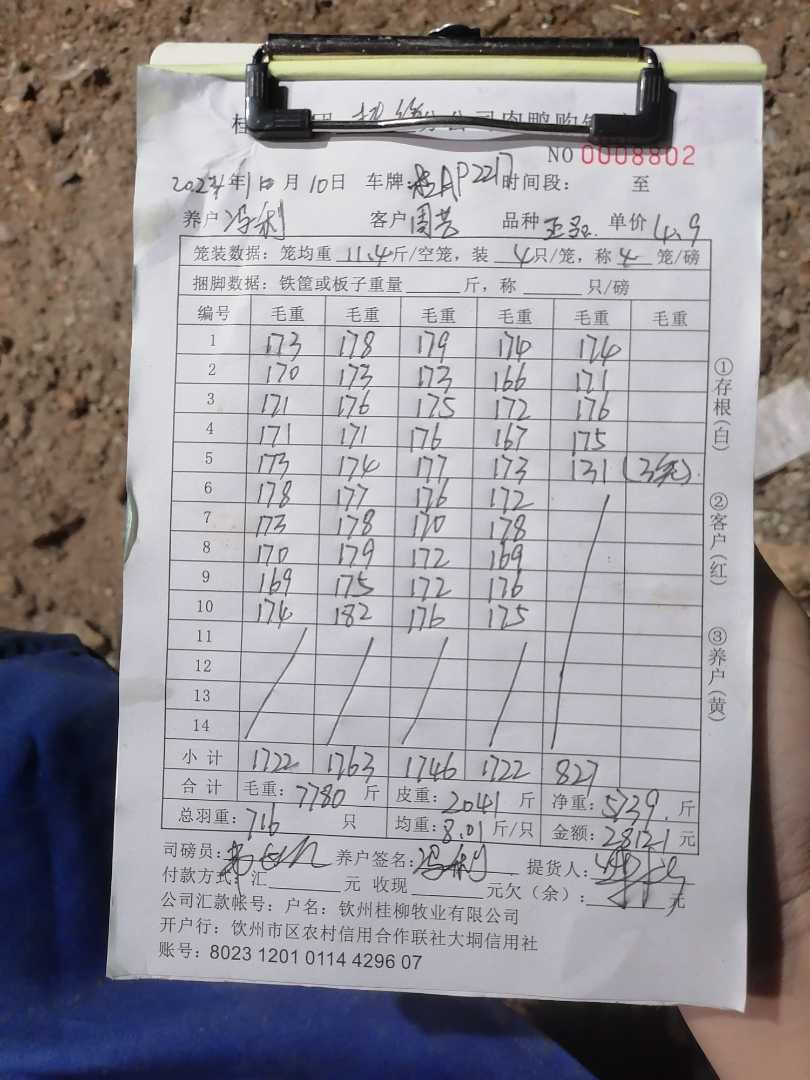 分公司肉鸭购销
NO 0008802
2024年10月10日 车牌:桂AP2217 时间段: 至
养户 冯利 客户 周 品种 单价 4.9
笼装数据:笼均重 11.4 斤/空笼,装 4 只/笼,称 4 笼/磅
捆脚数据:铁筐或板子重量 斤,称 只/磅
编号 毛重 毛重 毛重 毛重 毛重 毛重
1 173 178 179 174 174
2 170 173 173 166 171
3 171 176 175 172 176
4 171 171 176 167 175
5 173 174 177 173 131 (3笼)
6 178 177 176 172
7 173 178 170 178
8 170 179 172 169
9 169 175 172 176
10 174 182 176 175
11
12
13
14
小计 1722 1763 1746 1722 827
合计 毛重:7780 斤 皮重:2041 斤 净重:5739 斤
总羽重:716 只 均重:8.01 斤/只 金额:28121 元
司磅员: 养户签名:冯利 提货人:
付款方式:汇 元 收现 元欠(余): 元
公司汇款帐号:户名:钦州桂柳牧业有限公司
开户行:钦州市区农村信用合作联社大垌信用社
账号:8023 1201 0114 4296 07
①存根(白)
②客户(红)
③养户(黄)